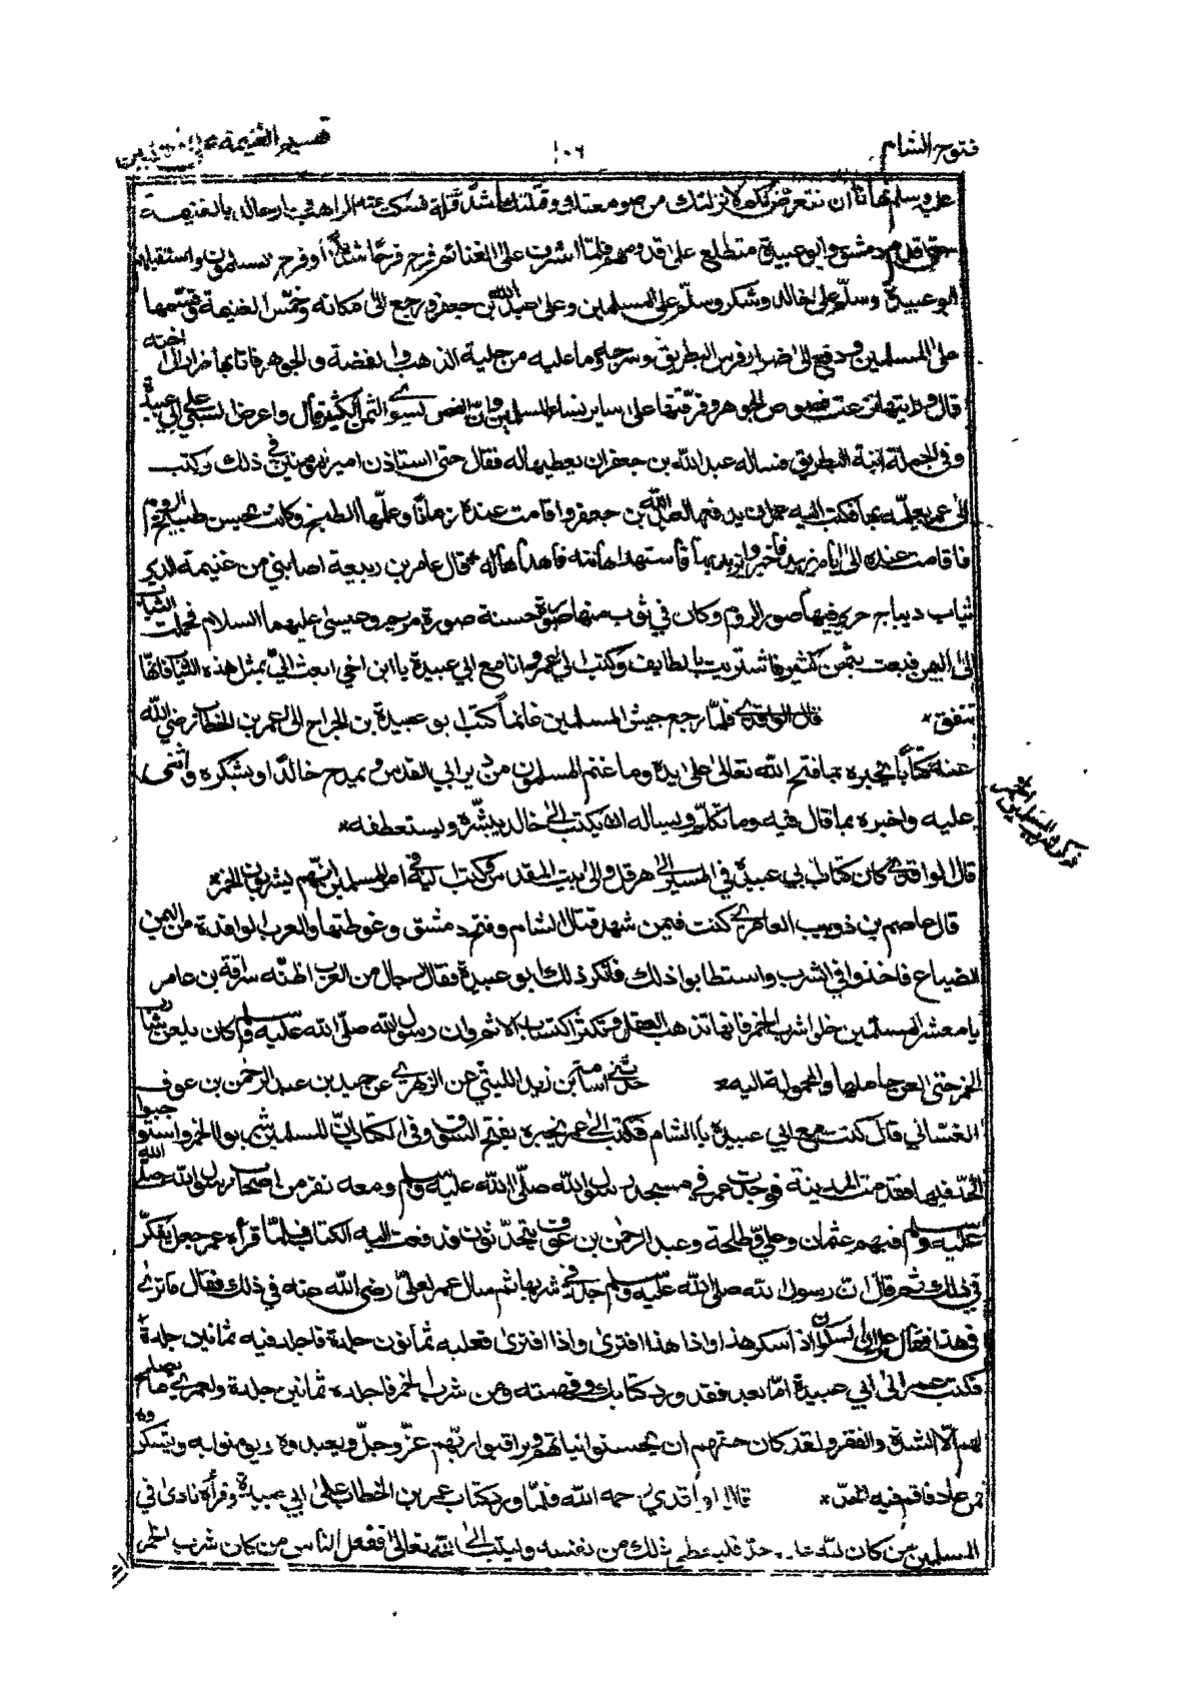 فتوح الشام
١٠٦
قسيم الغنيمة
عليه وسلم نهانا ان نتعرض لكم لانزلتك من صومعتك وقتلتك اشد قتلة فسكت عنه الراهب وسار خالد بالغنيمة
حتى قدم دمشق وابو عبيدة متطلع على قدومهم فلما اشرف على الغنائم فرح فرحا شديدا وفرح المسلمون واستقبله
ابو عبيدة وسلم على خالد وشكر وسلم على المسلمين وعلى عبد الله بن جعفر ورجع الى مكانه وخمس الغنيمة وقسمها
على المسلمين ودفع الى ضرار فرس البطريق وسرجه وما عليه من حلية الذهب والفضة والجوهر فاتا بها ضرار الى اخته
قال ورايتها نزعت فصوص الجوهر وفرقتها على ساير نساء المسلمين وان الفص ليسوى الثمن الكثير قال واعرض السبي على ابي عبيدة
وفي الجملة ابنة البطريق فساله عبد الله بن جعفر ان يعطيها له فقال حتى استاذن امير المؤمنين في ذلك وكتب
الى عمر يعلمه بها فكتب اليه عمر ان يدفعها لعبد الله بن جعفر واقامت عنده زمانا وعلمها الطبخ وكانت تحسن طبخ الروم
فاقامت عنده الى ايام يزيد فاخبروا يزيد بها فاستهداها منه فاهداها له * قال عامر بن ربيعة اصابني من غنيمة الدير
ثياب ديباج حرير فيها صور الروم وكان في ثوب منها صورة حسنة صورة مريم وعيسى عليهما السلام فحملت الثياب
الى اليمن فبيعت بثمن كثير فاشتريت بالطايف وكتب الي عمر وانا مع ابي عبيدة يا ابن اخي ابعث الي بمثل هذه الثياب فانها
تنفق * قال الواقدي فلما رجع جيش المسلمين غانما كتب ابو عبيدة بن الجراح الى عمر بن الخطاب رضي الله
عنه كتابا يخبره بما فتح الله تعالى على يده وما غنم المسلمون من دير ابي القدس ويمدح خالدا ويشكره واثنى
عليه واخبره بما قال فيه وما تكلم ويساله ان يكتب الى خالد يبشره ويستعطفه *
قال الواقدي كان كتاب ابي عبيدة في المسير الى هرقل والى بيت المقدس وكتب اليه في امر المسلمين انهم يشربون الخمر *
قال عاصم بن ذويب العامري كنت فيمن شهد قتال الشام وفتح دمشق وغوطتها والعرب الوافدة من اليمن
الضياع فاخذوا في الشرب واستطابوا ذلك فانكر ذلك ابو عبيدة فقال رجال من العرب اظنه سراقة بن عامر
يا معشر المسلمين خلوا شرب الخمر فانها تذهب العقل وتكثر اكتساب الاثم وان رسول الله صلى الله عليه وسلم كان يلعن شارب
الخمر حتى لعن حاملها والمحمولة اليه * حدثني اسامة بن زيد الليثي عن الزهري عن حميد بن عبد الرحمن بن عوف
الغساني قال كنت مع ابي عبيدة بالشام فكتب الى عمر يخبره بفتح الشام وفي الكتاب ان المسلمين شربوا الخمر واستوجبوا
الحد فيها فقدمت المدينة فوجدت عمر في مسجد رسول الله صلى الله عليه وسلم ومعه نفر من اصحاب رسول الله صلى الله
عليه وسلم فيهم عثمان وعلي وطلحة وعبد الرحمن بن عوف يتحدثون فدفعت اليه الكتاب فلما قراه عمر جعل يفكر
في ذلك ثم قال ان رسول الله صلى الله عليه وسلم جلد في شربها ثم سال عمر لعلي رضي الله عنه في ذلك فقال ما ترى
في هذا فقال علي ان السكران اذا سكر هذا واذا هذا افترى واذا افترى فعليه ثمانون جلدة فاجلد فيه ثمانين جلدة
فكتب عمر الى ابي عبيدة اما بعد فقد ورد كتابك وقصته ومن شرب الخمر فاجلده ثمانين جلدة ولعمري ما يصلح
لهم الا الشدة والفقر ولقد كان حقهم ان يحسنوا نياتهم ويراقبوا ربهم عز وجل ويعبدوه ويؤمنوا به ويشكروه
فمن عاد فاقم فيه الحد * قال الواقدي رحمه الله فلما ورد كتاب عمر بن الخطاب على ابي عبيدة وقراه نادى في
المسلمين من كان لله حد فليعطي ذلك من نفسه وليتب الى الله تعالى ففعل الناس من كان شرب الخمر
ذكر شرب المسلمين الخمر